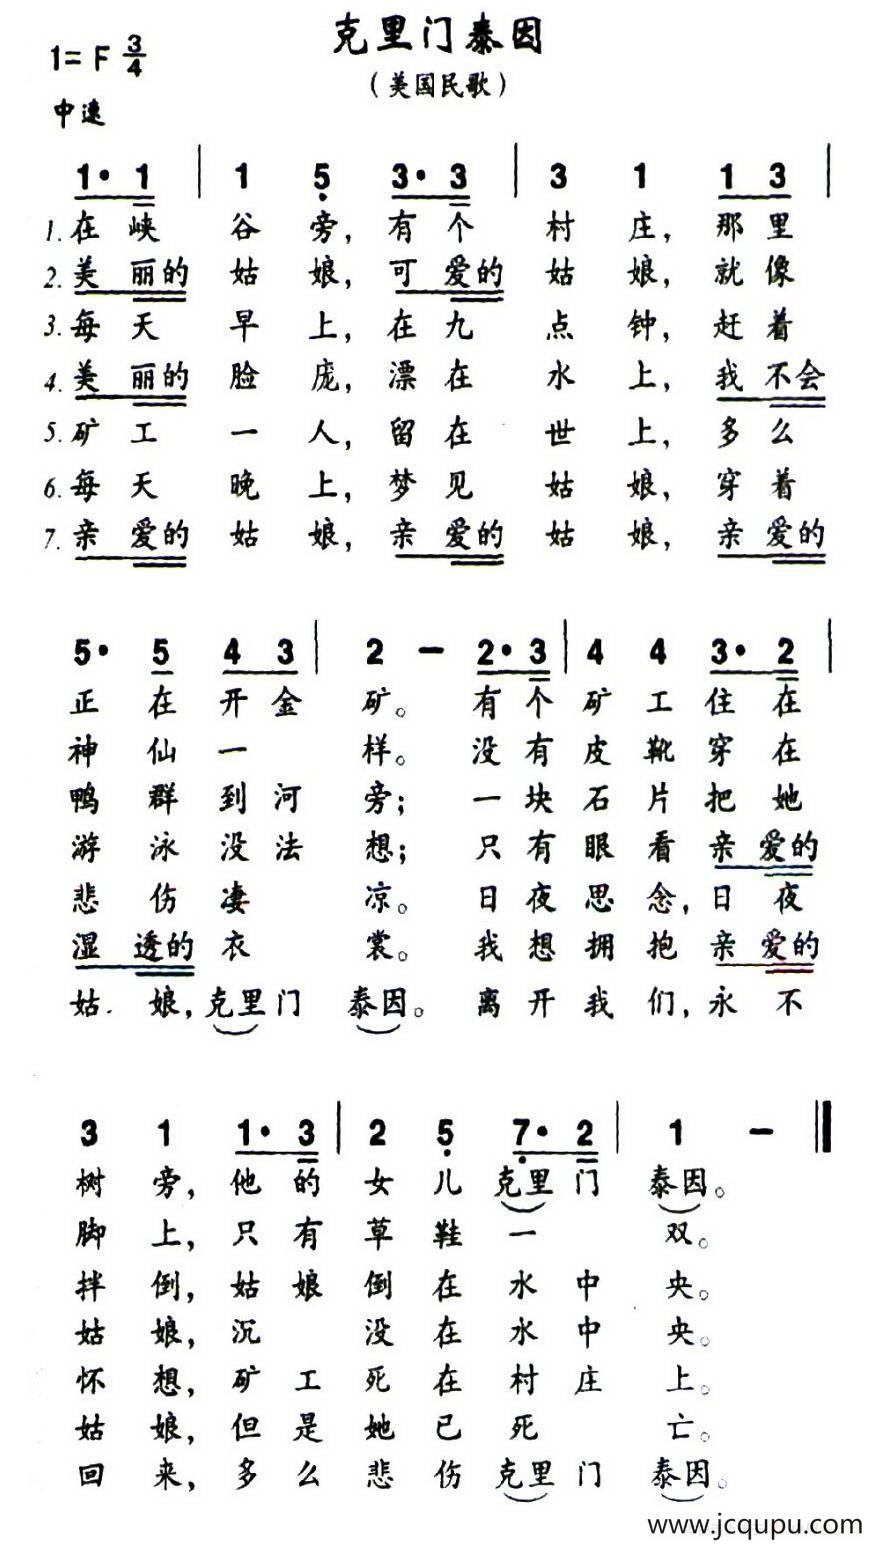 克里门泰因
1=F 3/4
（美国民歌）
中速
1· 1 | 1 5 3· 3 | 3 1 1 3 |
1. 在峡谷旁，有个村庄，那里
2. 美丽的姑娘，可爱的姑娘，就像
3. 每天早上，在九点钟，赶着
4. 美丽的脸庞，漂在水上，我不会
5. 矿工一人，留在世上，多么
6. 每天晚上，梦见姑娘，穿着
7. 亲爱的姑娘，亲爱的姑娘，亲爱的
5· 5 4 3 | 2 － 2· 3 | 4 4 3· 2 |
正在开金矿。有个矿工住在
神仙一样。没有皮靴穿在
鸭群到河旁；一块石片把她
游泳没法想；只有眼看亲爱的
悲伤凄凉。日夜思念，日夜
湿透的衣裳。我想拥抱亲爱的
姑娘，克里门泰因。离开我们，永不
3 1 1· 3 | 2 5 7· 2 | 1 － ‖
树旁，他的女儿克里门泰因。
脚上，只有草鞋一双。
拌倒，姑娘倒在水中央。
姑娘，沉没在水中央。
怀想，矿工死在村庄上。
姑娘，但是她已死亡。
回来，多么悲伤克里门泰因。
www.jcqupu.com